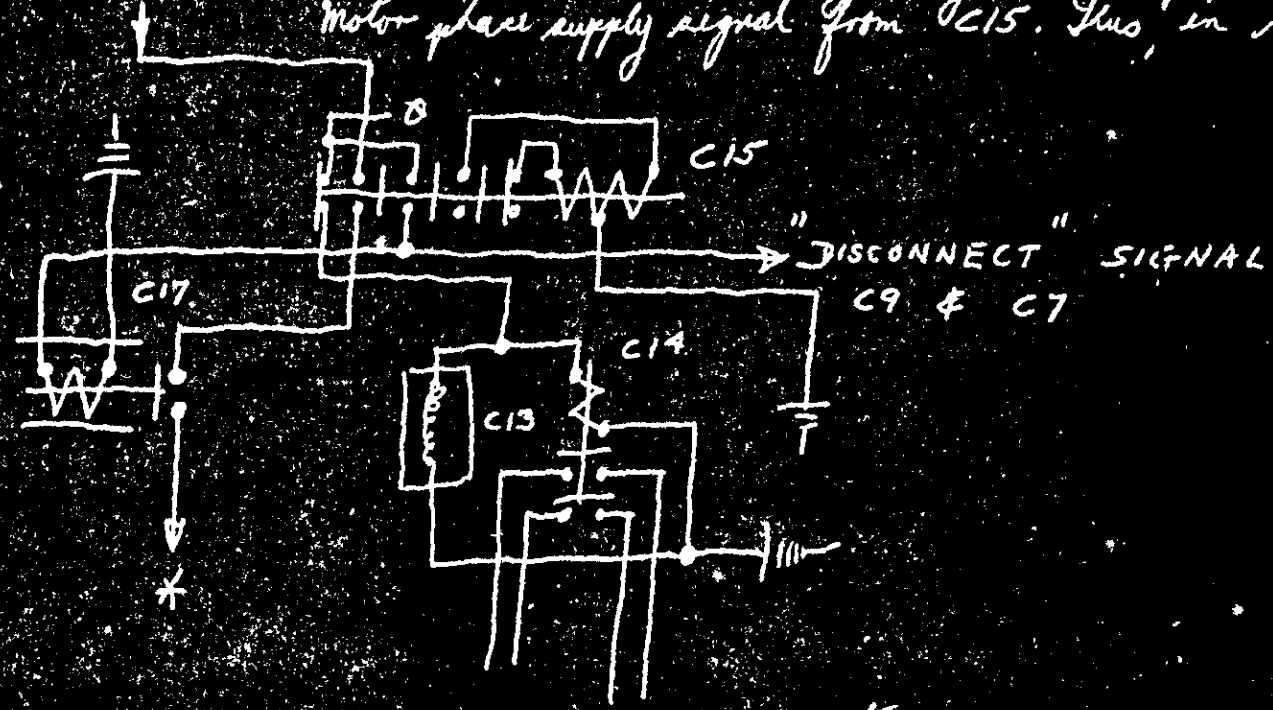 Motor phase supply signal from C15. Thus, in
Ø
C15
"DISCONNECT" SIGNAL
C9 & C7
C17.
C14
C13